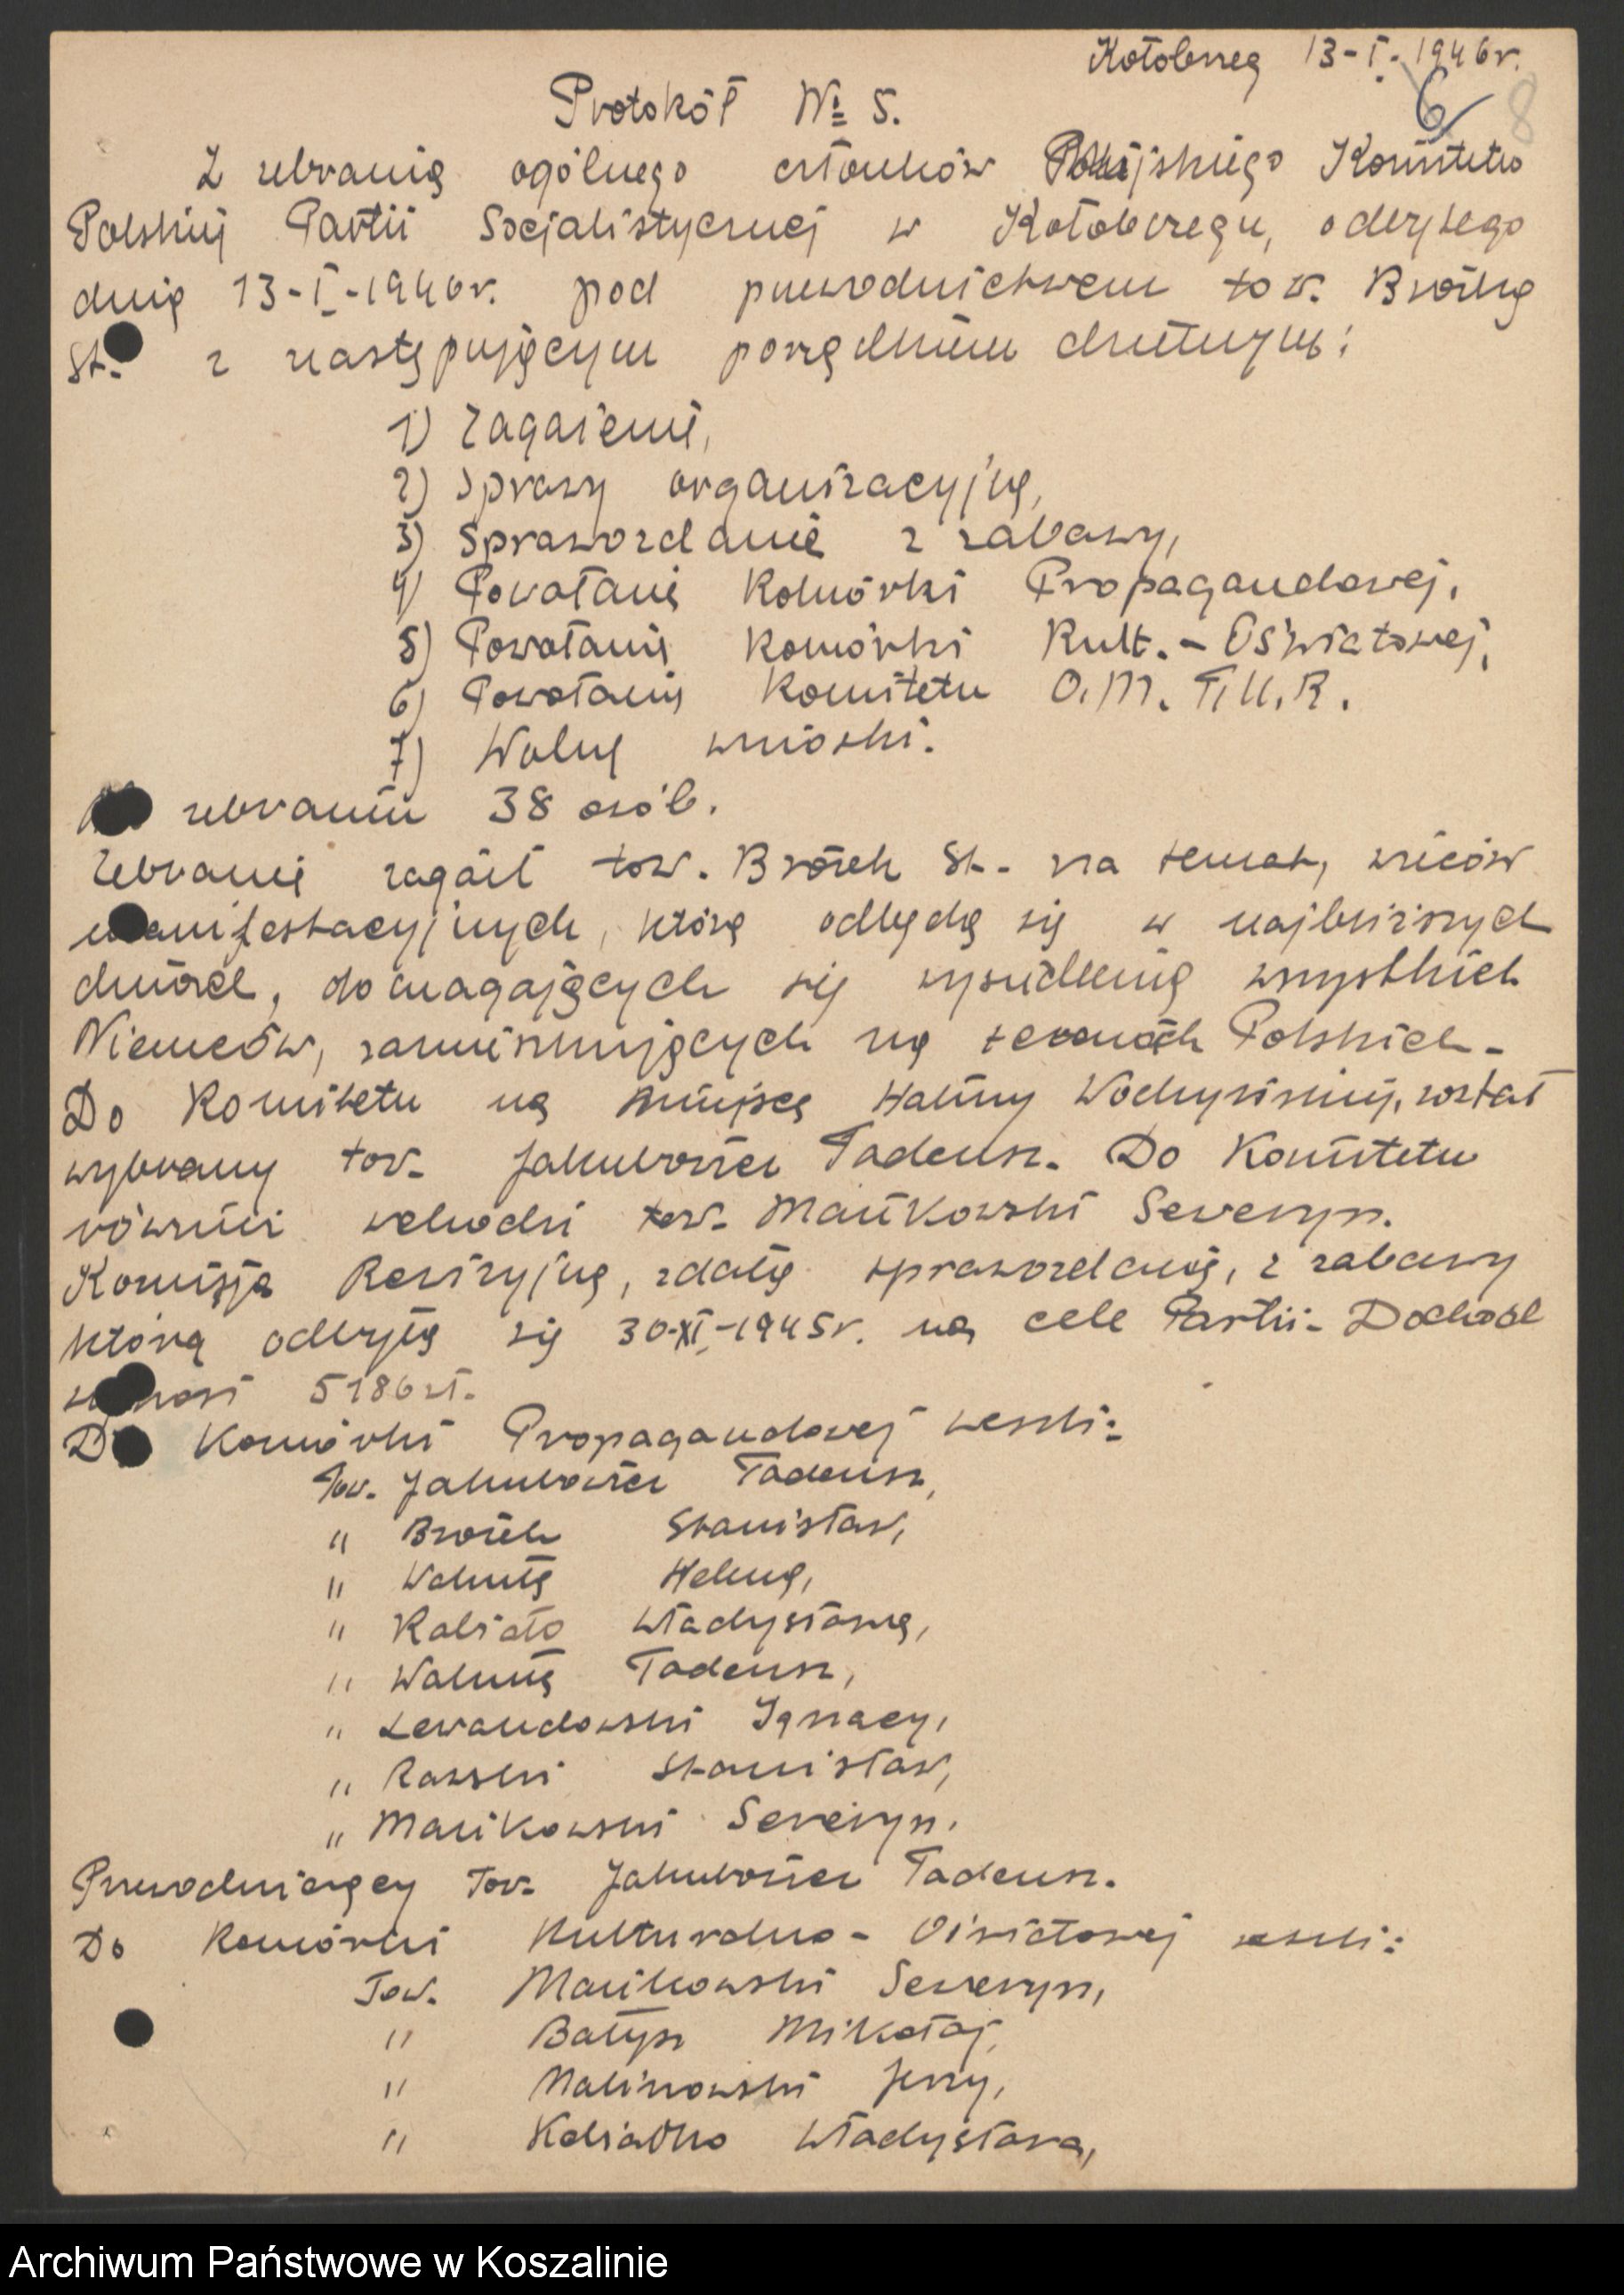 Kołobrzeg 13-I-1946r.
6 8
Protokół № 5.
Z zebrania ogólnego członków Komitetu
Polskiej Partii Socjalistycznej w Kołobrzegu, odbytego
dnia 13-I-1946r. pod przewodnictwem tow. Brózka
St. z następującym porządkiem dziennym:
1) Zagajenie,
2) Sprawy organizacyjne,
3) Sprawozdanie z zabawy,
4) Powołanie Komórki Propagandowej,
5) Powołanie Komórki Kult.-Oświatowej,
6) Powołanie Komitetu O.M.T.U.R.
7) Wolne wnioski.
zebraniu 38 osób.
Zebranie zagaił tow. Brózek St. na temat, wieców
manifestacyjnych, które odbędą się w najbliższych
dniach, domagających się wysiedlenia wszystkich
Niemców, zamieszkujących na terenach Polskich.
Do Komitetu na miejsce Haliny został
wybrany tow. Jakubowicz Tadeusz. Do Komitetu
również wchodzi tow. Mańkowski Seweryn.
Komisja Rewizyjna, zdała sprawozdanie, z zabawy
która odbyła się 30-XI-1945r. na cele Partii. Dochód
wynosi 5186 zł.
Do Komórki Propagandowej weszli:
Tow. Jakubowicz Tadeusz,
" Brózek Stanisław,
" Helena,
" Władysława,
" Tadeusz,
" Lewandowski Ignacy,
" Rawski Stanisław,
" Mańkowski Seweryn.
Przewodniczący Tow. Jakubowicz Tadeusz.
Do Komórki Kulturalno-Oświatowej weszli:
Tow. Mańkowski Seweryn,
" Mikołaj,
" Malinowski Jerzy,
" Władysława,
Archiwum Państwowe w Koszalinie